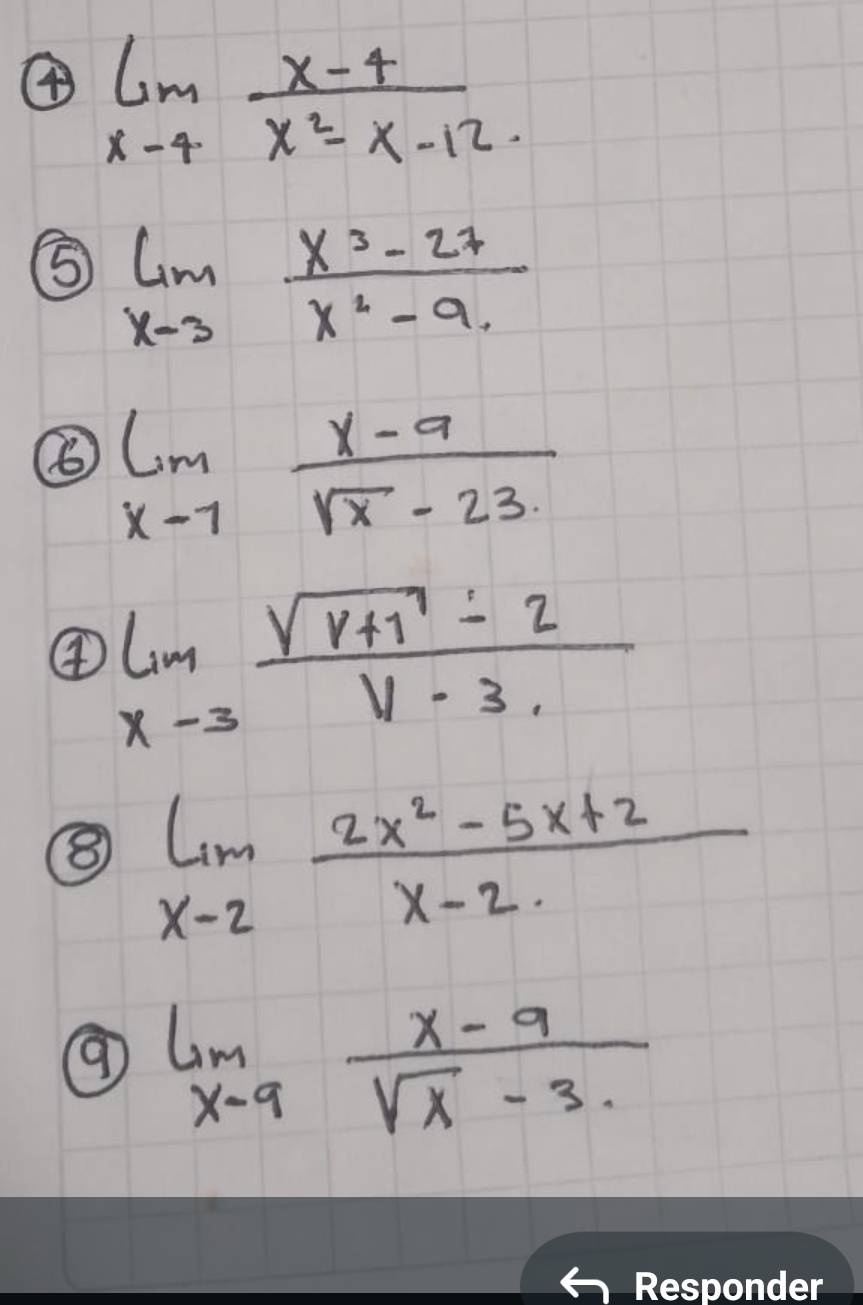 ④ Lim x-4
x-4 x²-x-12.
⑤ Lim x³-27
x-3 x²-9.
⑥ Lim x-9
x-1 √x - 23.
⑦ Lim √V+1 - 2
x-3 V-3.
⑧ Lim 2x²-5x+2
x-2 x-2.
⑨ Lim x-9
x-9 √x - 3.
Responder